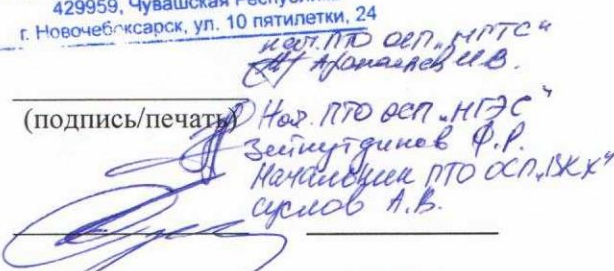 429959, Чувашская Республика
г. Новочебоксарск, ул. 10 пятилетки, 24
нач. ПТО ОСП „НГТС“
Афанасьев И.В.
(подпись/печать)
Нач. ПТО ОСП „НГЭС“
Зейнутдинов Ф.Р.
Начальник ПТО ОСП „ВКХ“
Суслов А.В.